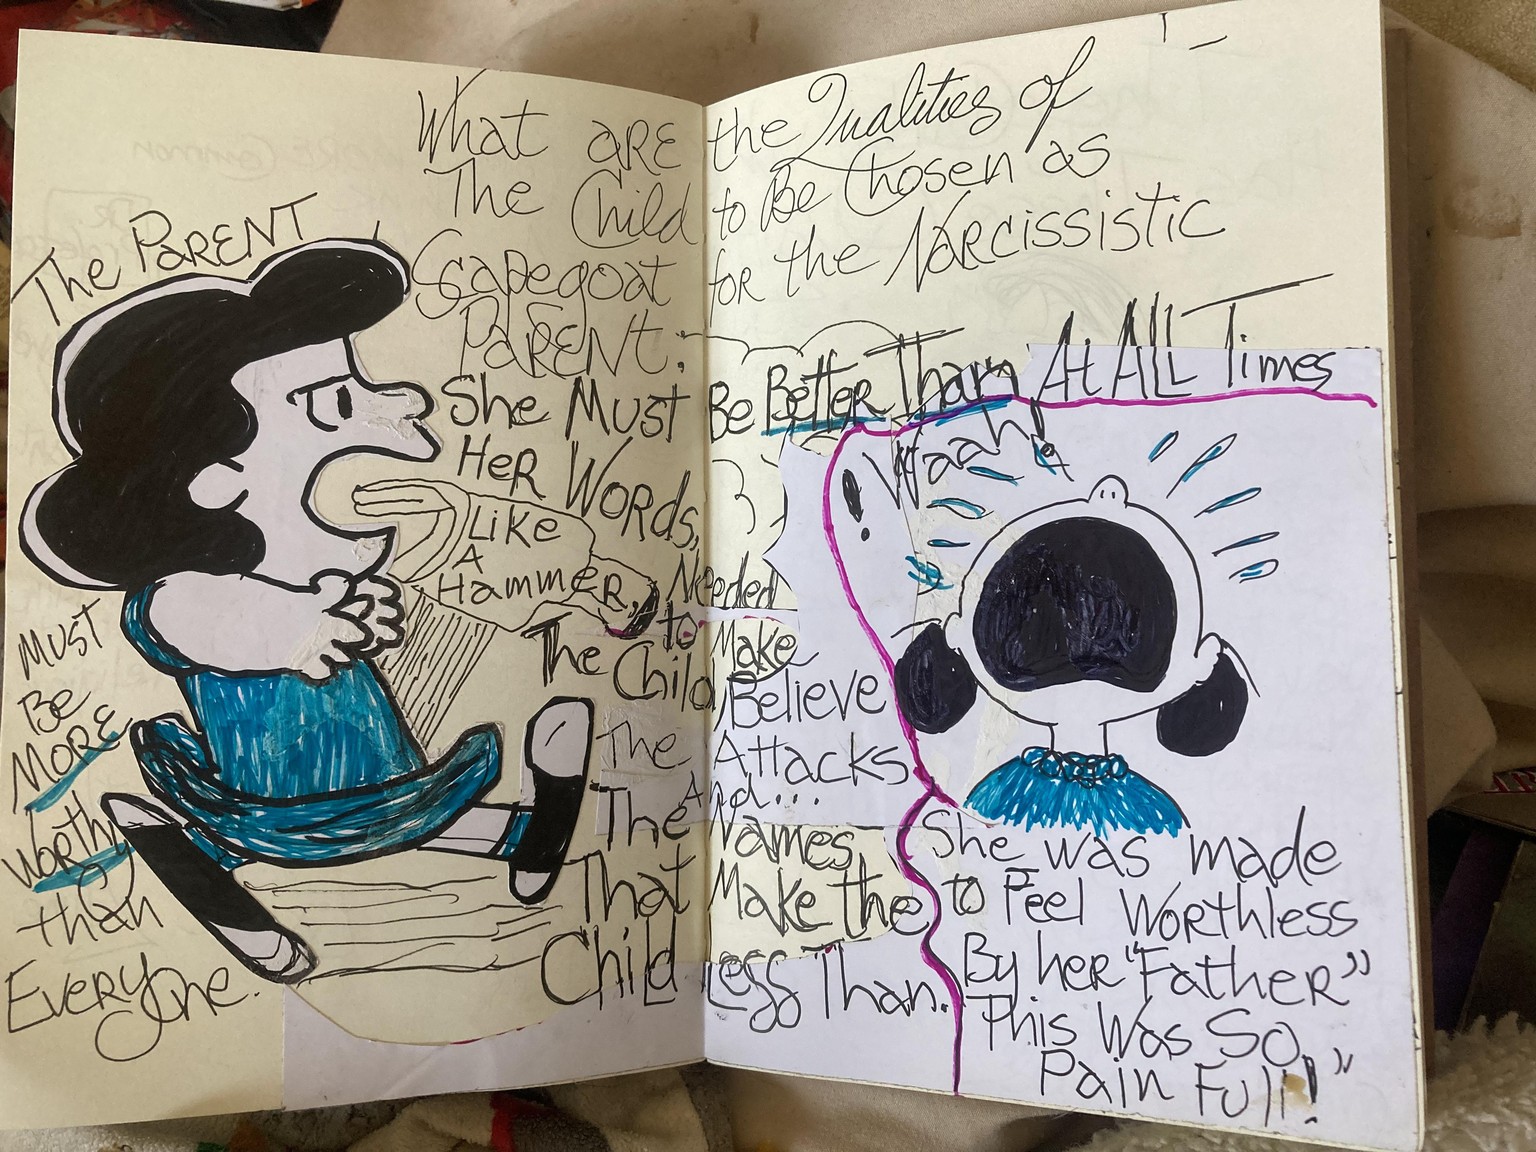 What are the Qualities of
The Child to Be Chosen as
Scapegoat for the Narcissistic
Parent:
The PARENT
She Must Be Better Than At ALL Times
Her Words,
Like
A
Hammer, Needed
to Make
The Child Believe
The Attacks
And...
The Names
That Make the
Child Less Than.
Must
Be
MORE
Worthy
than
Everyone.
Waah!
!
She was made
to Feel Worthless
By her "Father"
This Was So
Pain Full!"